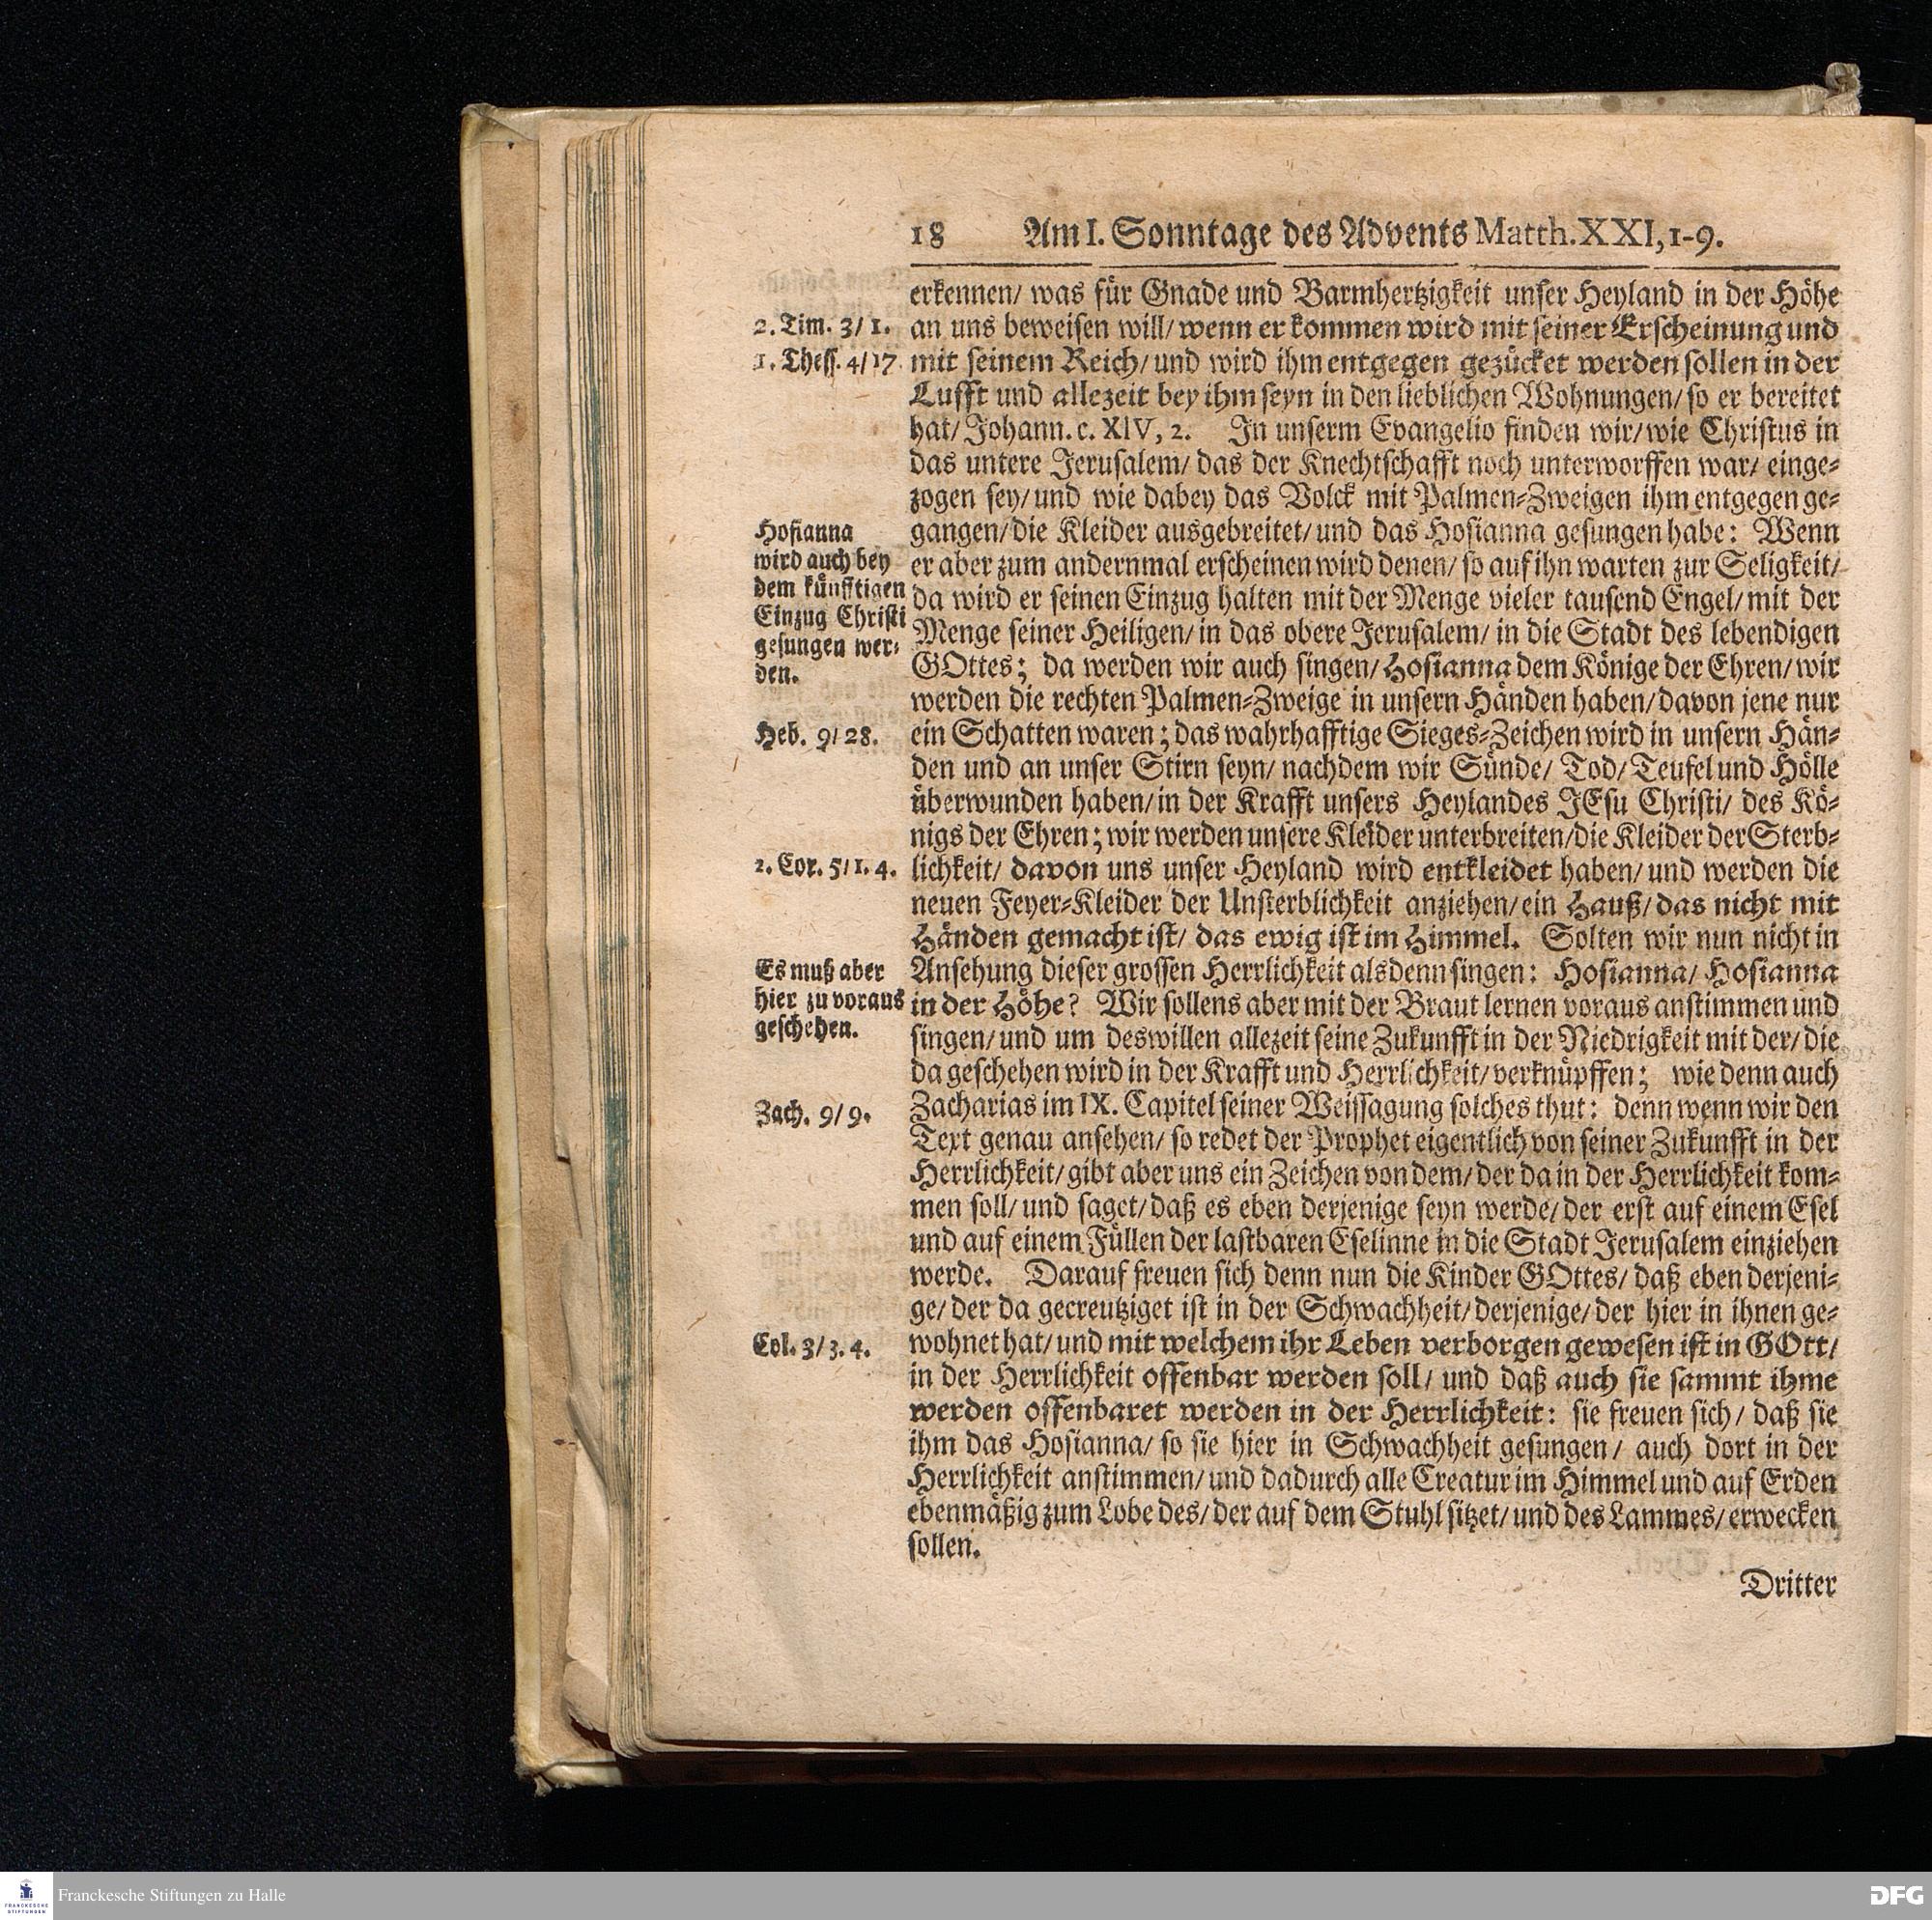 18 Am I. Sonntage des Advents Matth. XXI, 1-9.
erkennen/ was für Gnade und Barmhertzigkeit unser Heyland in der Höhe
2. Tim. 3/ 1.
an uns beweisen will/ wenn er kommen wird mit seiner Erscheinung und
1. Thess. 4/ 17.
mit seinem Reich/ und wird ihm entgegen gezücket werden sollen in der
Lufft und allezeit bey ihm seyn in den lieblichen Wohnungen/ so er bereitet
hat/ Johann. c. XIV, 2. In unserm Evangelio finden wir/ wie Christus in
das untere Jerusalem/ das der Knechtschafft noch unterworffen war/ einge-
zogen sey/ und wie dabey das Volck mit Palmen-Zweigen ihm entgegen ge-
gangen/ die Kleider ausgebreitet/ und das Hosianna gesungen habe: Wenn
er aber zum andernmal erscheinen wird denen/ so auf ihn warten zur Seligkeit/
da wird er seinen Einzug halten mit der Menge vieler tausend Engel/ mit der
Menge seiner Heiligen/ in das obere Jerusalem/ in die Stadt des lebendigen
GOttes; da werden wir auch singen/ Hosianna dem Könige der Ehren/ wir
Hosianna
wird auch bey
dem künfftigen
Einzug Christi
gesungen wer-
den.
werden die rechten Palmen-Zweige in unsern Händen haben/ davon jene nur
Heb. 9/ 28.
ein Schatten waren; das wahrhafftige Sieges-Zeichen wird in unsern Hän-
den und an unser Stirn seyn/ nachdem wir Sünde/ Tod/ Teufel und Hölle
überwunden haben/ in der Krafft unsers Heylandes JEsu Christi/ des Kö-
nigs der Ehren; wir werden unsere Kleider unterbreiten/ die Kleider der Sterb-
2. Cor. 5/ 1. 4.
lichkeit/ davon uns unser Heyland wird entkleidet haben/ und werden die
neuen Feyer-Kleider der Unsterblichkeit anziehen/ ein Hauß/ das nicht mit
Händen gemacht ist/ das ewig ist im Himmel. Solten wir nun nicht in
Ansehung dieser grossen Herrlichkeit alsdenn singen: Hosianna/ Hosianna
in der Höhe? Wir sollens aber mit der Braut lernen voraus anstimmen und
singen/ und um deswillen allezeit seine Zukunfft in der Niedrigkeit mit der/ die
Es muß aber
hier zu voraus
geschehen.
da geschehen wird in der Krafft und Herrlichkeit/ verknüpffen; wie denn auch
Zach. 9/ 9.
Zacharias im IX. Capitel seiner Weissagung solches thut: denn wenn wir den
Text genau ansehen/ so redet der Prophet eigentlich von seiner Zukunfft in der
Herrlichkeit/ gibt aber uns ein Zeichen von dem/ der da in der Herrlichkeit kom-
men soll/ und saget/ daß es eben derjenige seyn werde/ der erst auf einem Esel
und auf einem Füllen der lastbaren Eselinne in die Stadt Jerusalem einziehen
werde. Darauf freuen sich denn nun die Kinder GOttes/ daß eben derjeni-
ge/ der da gecreutziget ist in der Schwachheit/ derjenige/ der hier in ihnen ge-
Col. 3/ 3. 4.
wohnet hat/ und mit welchem ihr Leben verborgen gewesen ist in GOtt/
in der Herrlichkeit offenbar werden soll/ und daß auch sie sammt ihme
werden offenbaret werden in der Herrlichkeit: sie freuen sich/ daß sie
ihm das Hosianna/ so sie hier in Schwachheit gesungen/ auch dort in der
Herrlichkeit anstimmen/ und dadurch alle Creatur im Himmel und auf Erden
ebenmäßig zum Lobe des/ der auf dem Stuhl sitzet/ und des Lammes/ erwecken
sollen.
Dritter
FRANCKESCHE
STIFTUNGEN
Franckesche Stiftungen zu Halle
DFG